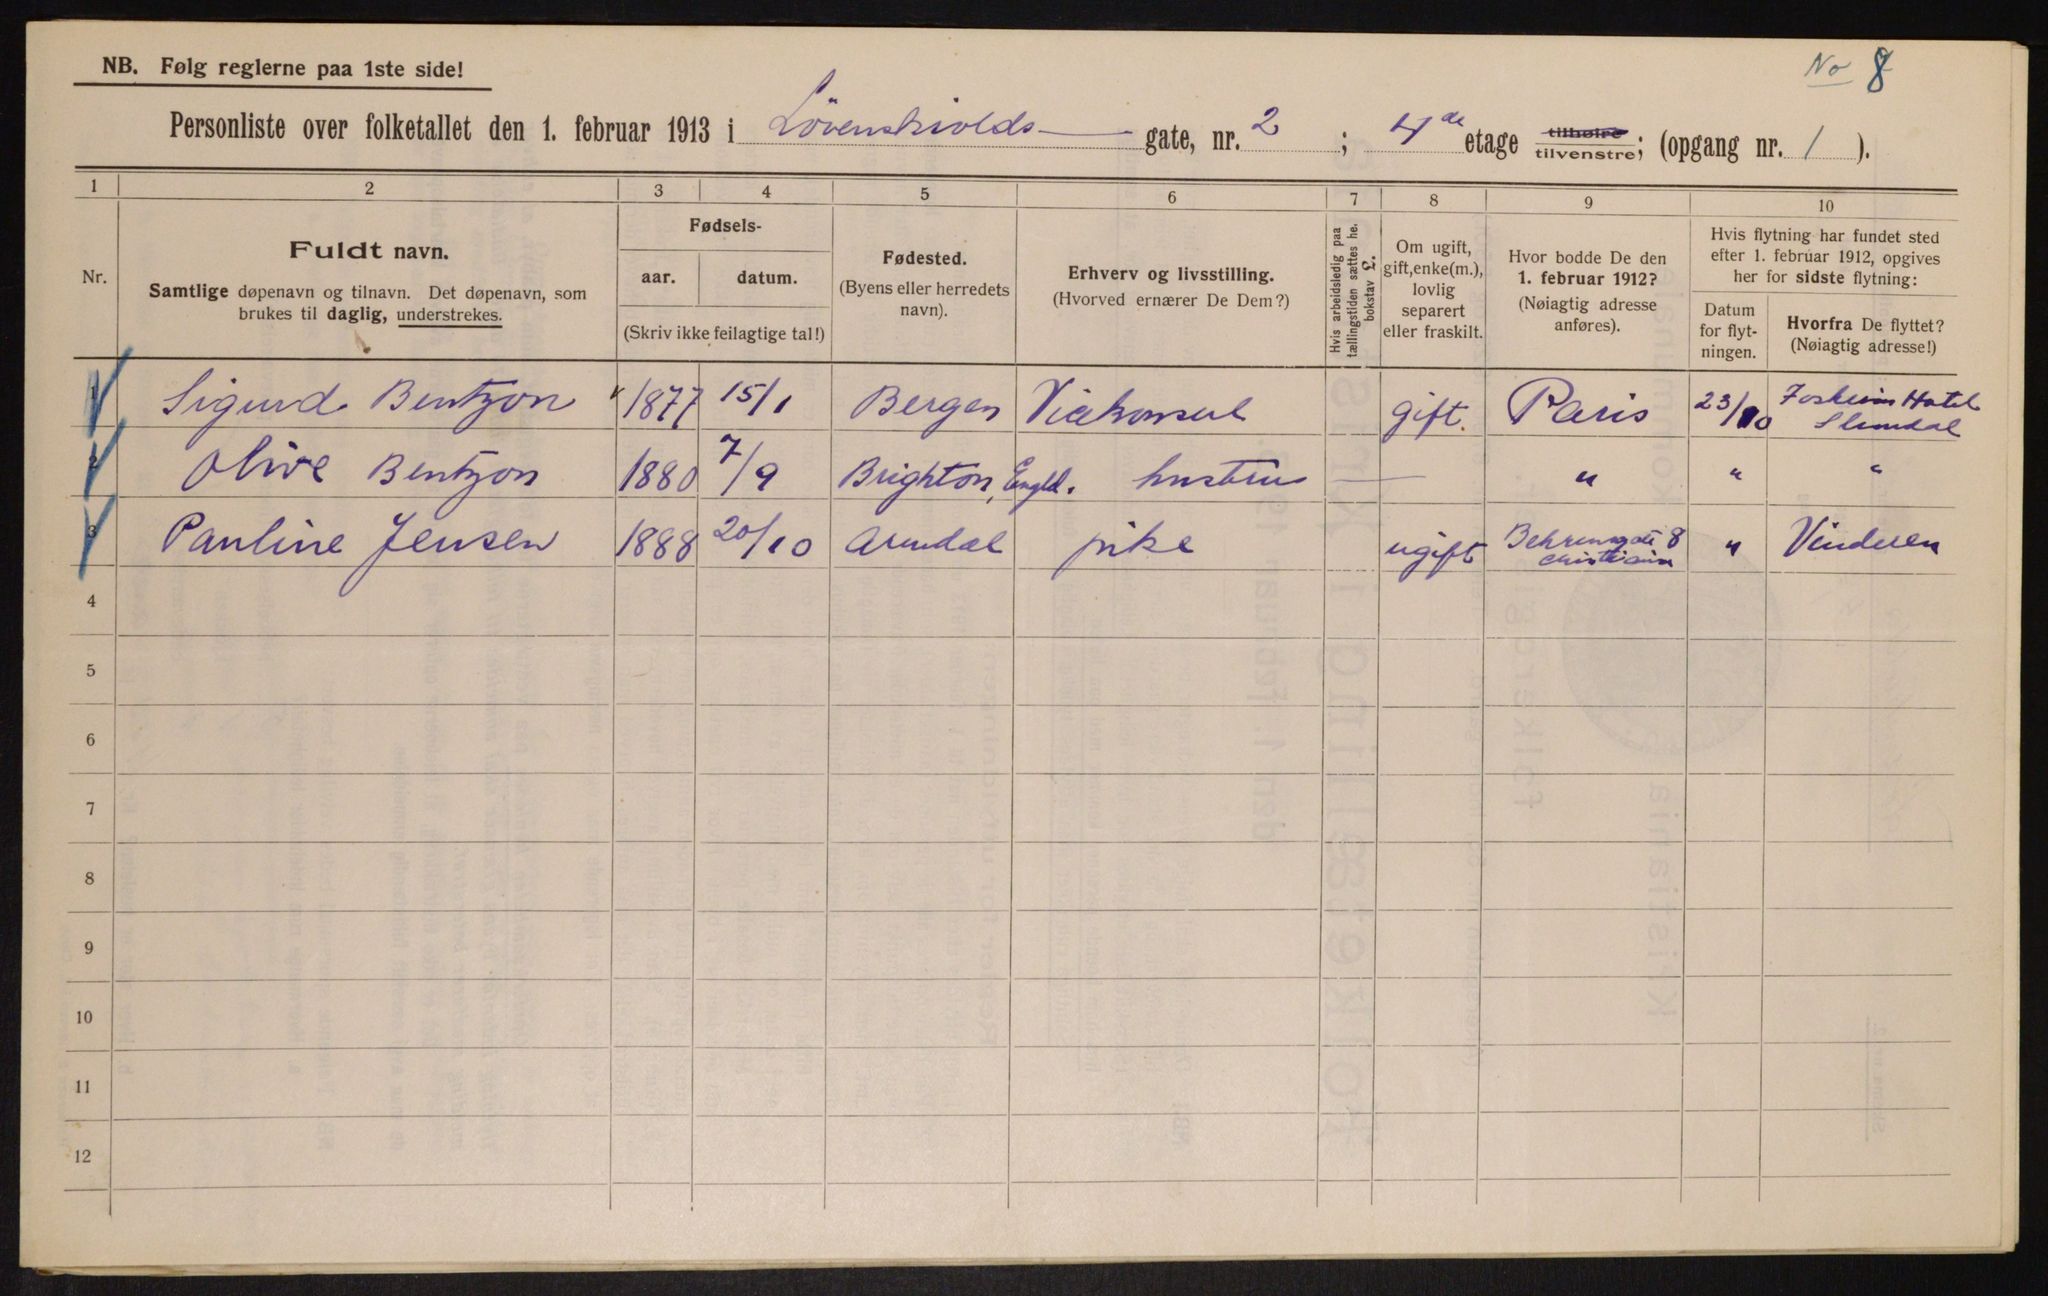 No 8
NB. Følg reglerne paa 1ste side!
Personliste over folketallet den 1. februar 1913 i Lövenskiolds gate, nr. 2 ; 4de etage tilhøire tilvenstre; (opgang nr. 1 ).
1 2 3 4 5 6 7 8 9 10
Nr.
Fuldt navn.
Samtlige døpenavn og tilnavn. Det døpenavn, som
brukes til daglig, understrekes.
Fødsels-
aar. datum.
(Skriv ikke feilagtige tal!)
Fødested.
(Byens eller herredets
navn).
Erhverv og livsstilling.
(Hvorved ernærer De Dem?)
Hvis arbeidsledig paa
tællingstiden sættes he.
bokstav £.
Om ugift,
gift, enke(m.),
lovlig
separert
eller fraskilt.
Hvor bodde De den
1. februar 1912?
(Nøiagtig adresse
anføres).
Hvis flytning har fundet sted
efter 1. februar 1912, opgives
her for sidste flytning:
Datum
for flyt-
ningen.
Hvorfra De flyttet?
(Nøiagtig adresse!)
1 Sigurd Bentzon 1877 15/1 Bergen Vicekonsul gift. Paris 23/10 Hotel
2 Olive Bentzon 1880 7/9 Brighton, Engld. hustru — " " "
3 Pauline Jensen 1888 20/10 Arendal pike ugift Behrensgate 8 " Vinderen
Christiania
4
5
6
7
8
9
10
11
12